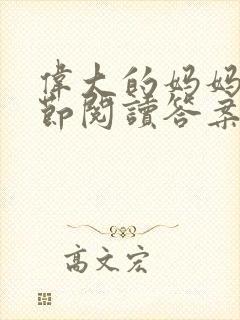 偉大的妈妈
節閱讀答案
高文宏